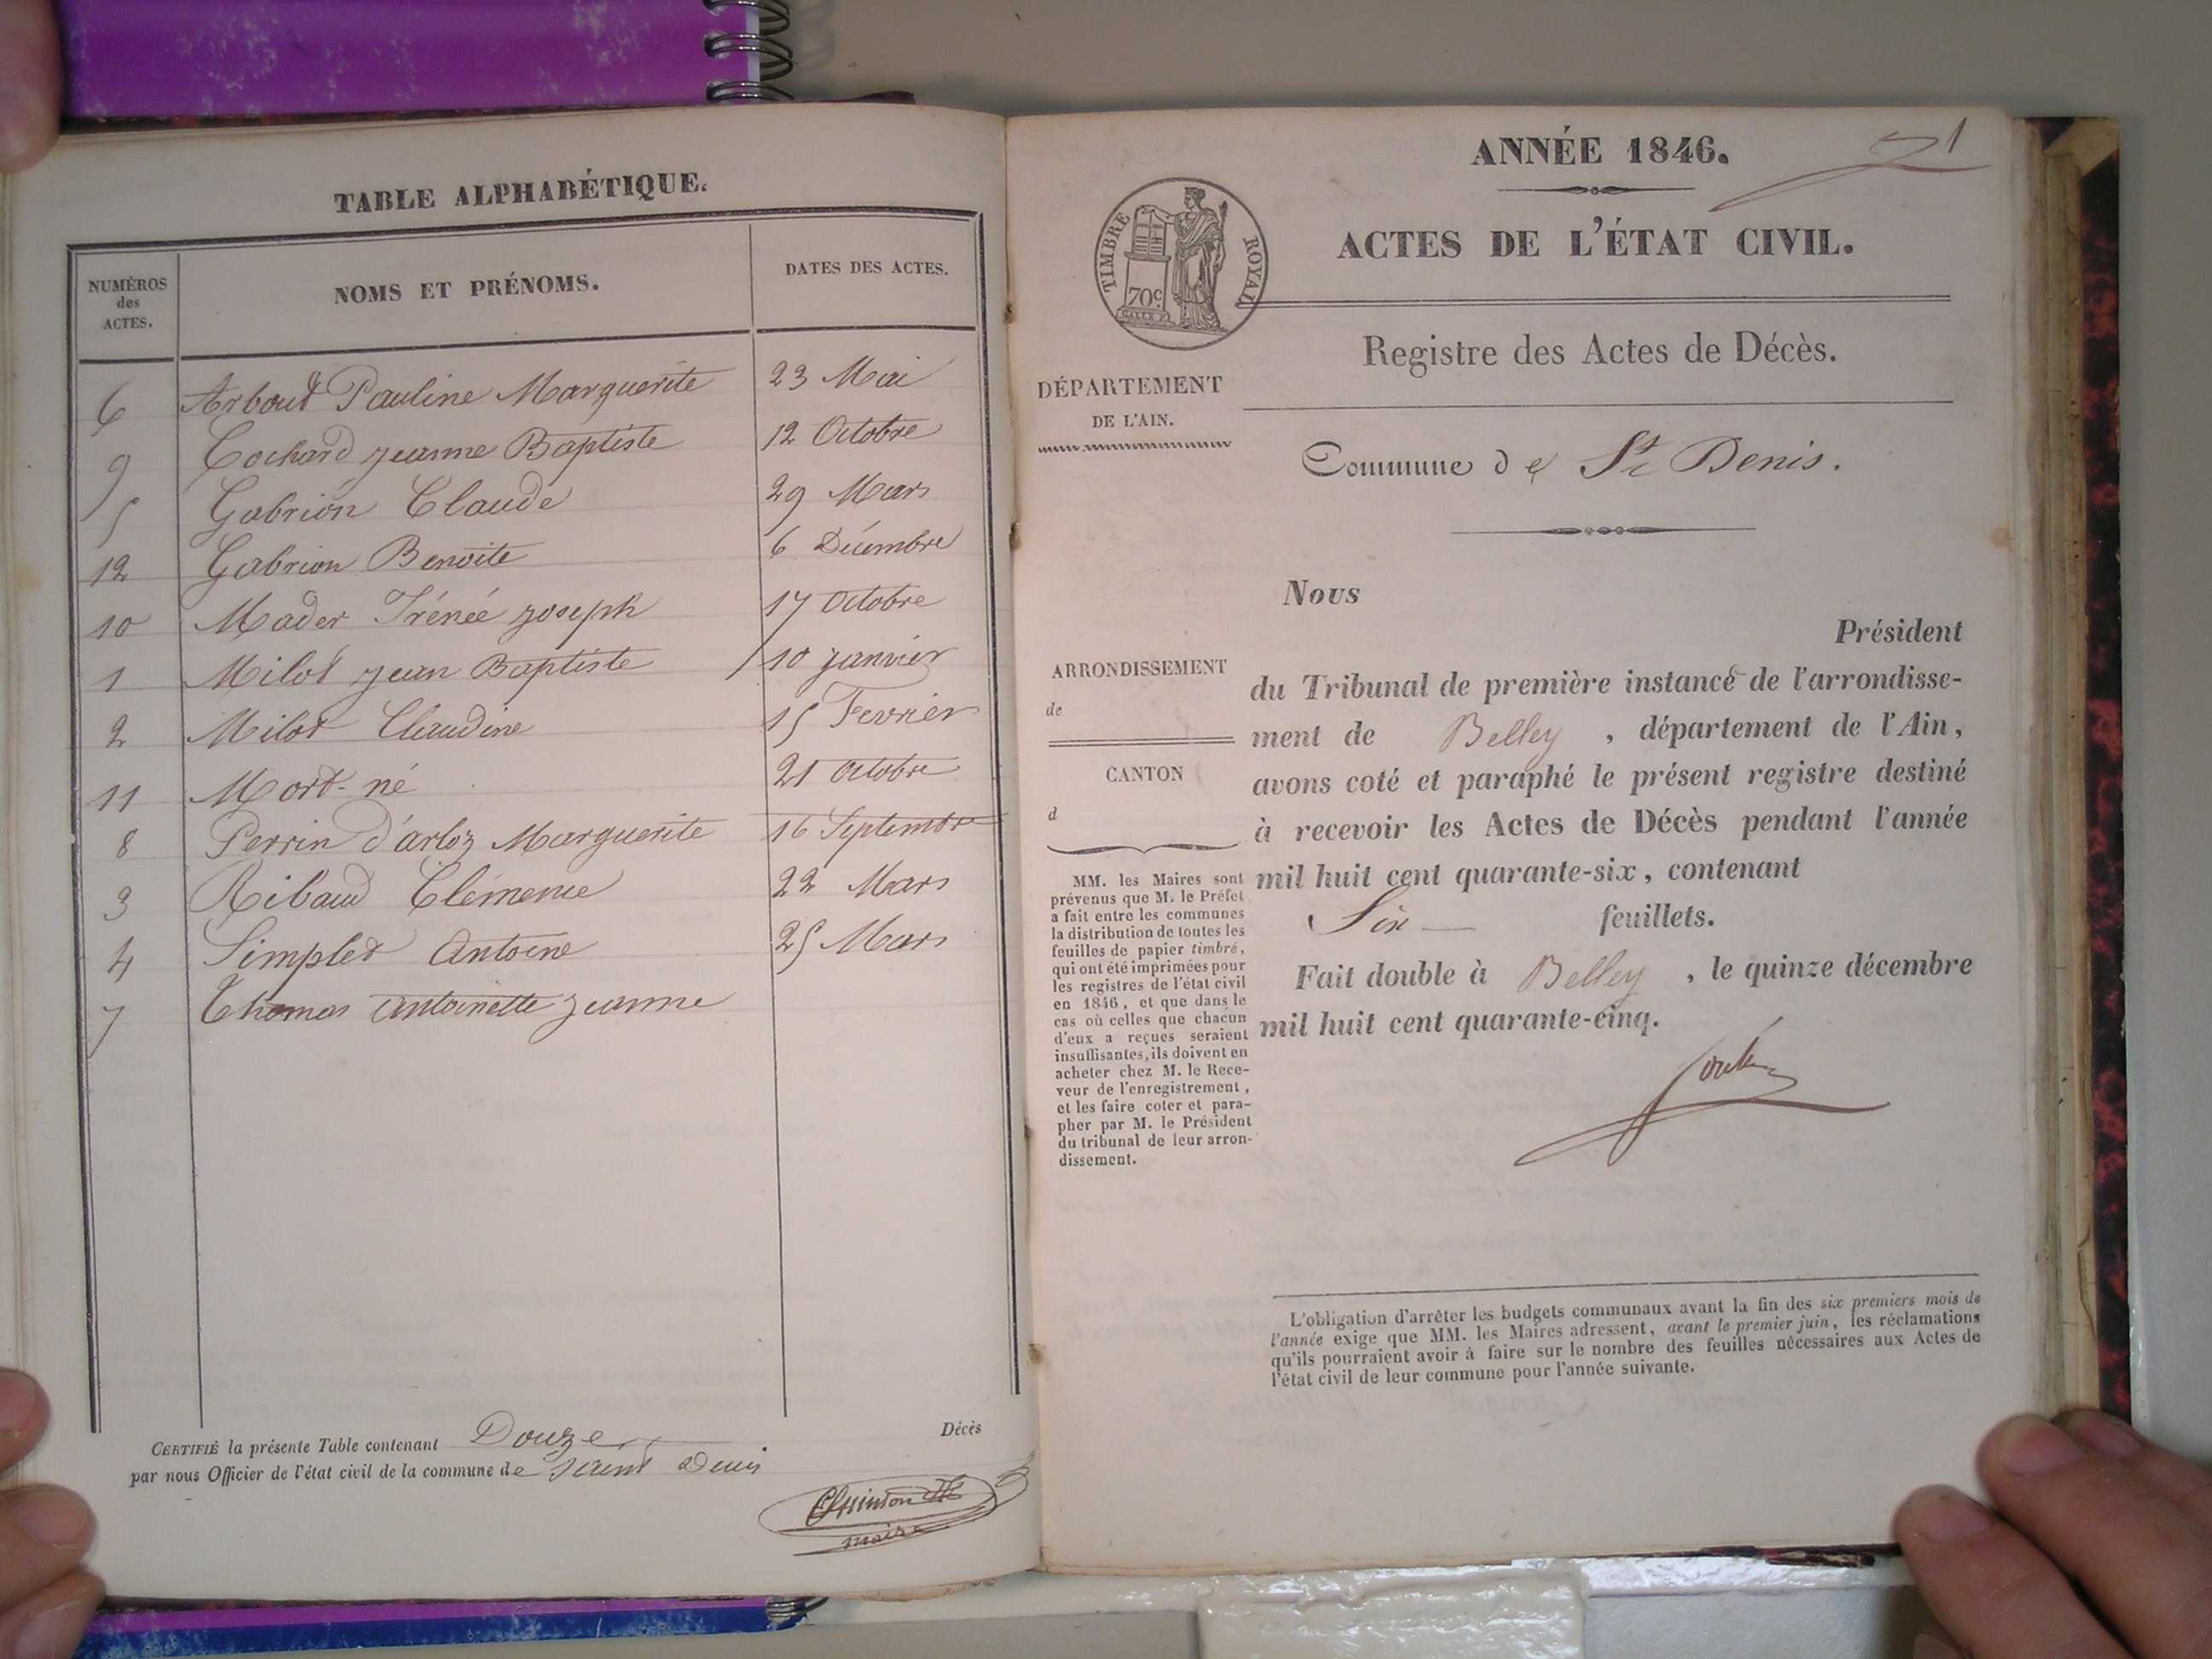 TABLE ALPHABÉTIQUE.
NUMÉROS des ACTES.
NOMS ET PRÉNOMS.
DATES DES ACTES.
6 Arboud Pauline Marguerite 23 Mai
9 Cochard Jeanne Baptiste 12 Octobre
5 Gabrion Claude 29 Mars
12 Gabrion Benoite 6 Décembre
10 Mader Irénée Joseph 17 Octobre
1 Milot Jean Baptiste 10 Janvier
2 Milot Claudine 15 Fevrier
11 Mort-né 21 Octobre
8 Perrin d'arloz Marguerite 16 Septembre
3 Ribaud Clémence 22 Mars
4 Simplet Antoine 25 Mars
7 Thomas Antoinette Jeanne
CERTIFIÉ la présente Table contenant Douze Décès
par nous Officier de l'état civil de la commune de Saint Denis
maire
ANNÉE 1846.
1
TIMBRE ROYAL
70c.
ACTES DE L'ÉTAT CIVIL.
Registre des Actes de Décès.
DÉPARTEMENT
DE L'AIN.
Commune de St Denis.
Nous
Président
du Tribunal de première instance de l'arrondisse-
ment de Belley, département de l'Ain,
avons coté et paraphé le présent registre destiné
à recevoir les Actes de Décès pendant l'année
mil huit cent quarante-six, contenant
Six feuillets.
Fait double à Belley, le quinze décembre
mil huit cent quarante-cinq.
ARRONDISSEMENT
de
CANTON
d
MM. les Maires sont
prévenus que M. le Préfet
a fait entre les communes
la distribution de toutes les
feuilles de papier timbré,
qui ont été imprimées pour
les registres de l'état civil
en 1846, et que dans le
cas où celles que chacun
d'eux a reçues seraient
insuffisantes, ils doivent en
acheter chez M. le Rece-
veur de l'enregistrement,
et les faire coter et para-
pher par M. le Président
du tribunal de leur arron-
dissement.
L'obligation d'arrêter les budgets communaux avant la fin des six premiers mois de
l'année exige que MM. les Maires adressent, avant le premier juin, les réclamations
qu'ils pourraient avoir à faire sur le nombre des feuilles nécessaires aux Actes de
l'état civil de leur commune pour l'année suivante.